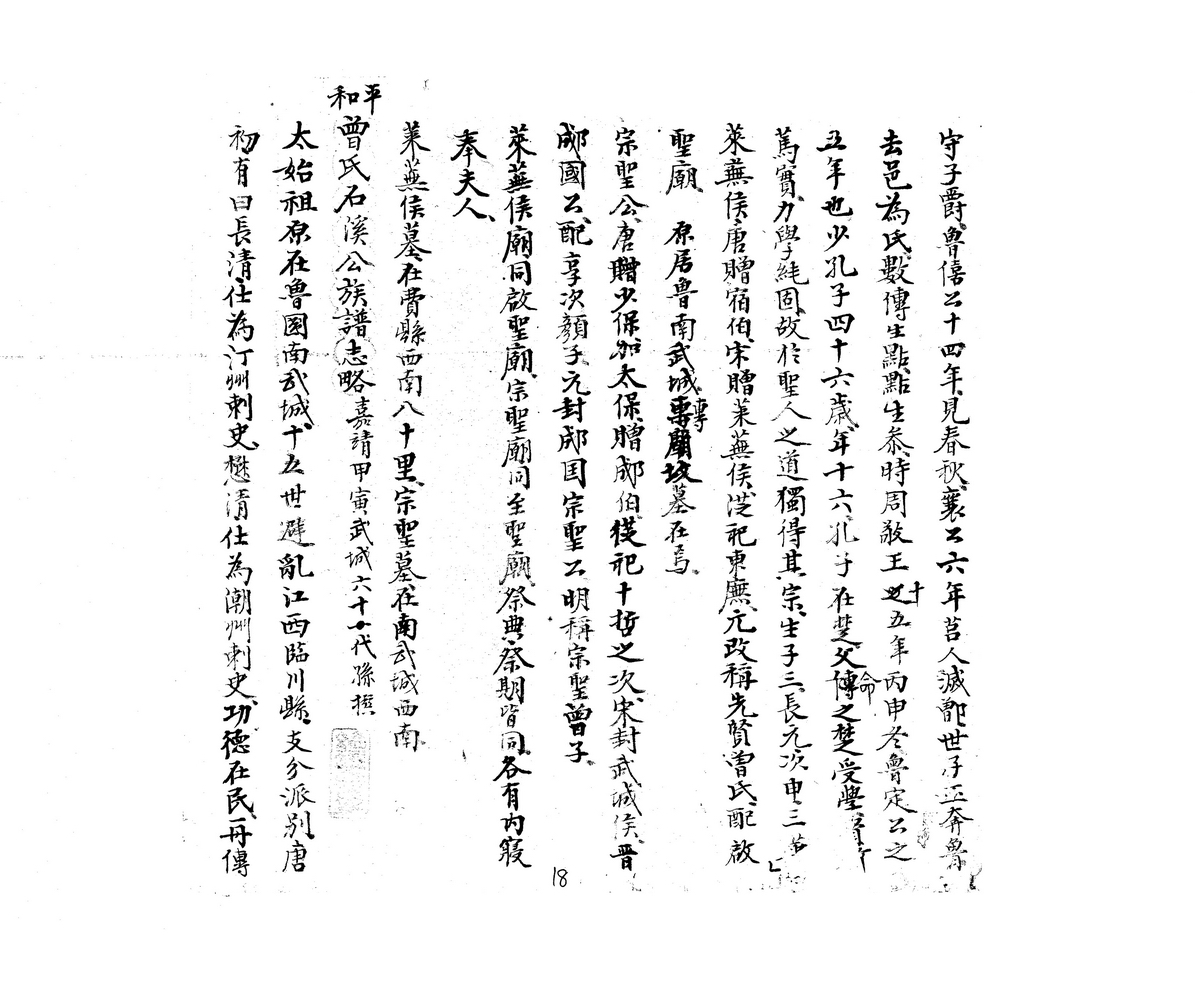 守子爵、魯僖公十四年、見春秋、襄公六年莒人滅鄫世子巫奔魯
去邑為氏、數傳生點、點生參、時周敬王十五年丙申冬魯定公之
五年也、少孔子四十六歲、年十六孔子在楚父命之楚受學
篤實力學純固、故於聖人之道獨得其宗、生子三、長元次申三
萊蕪侯、唐贈宿伯、宋贈萊蕪侯、從祀東廡、元改稱先賢曾氏、配啟
聖廟 原居魯南武城、專廟墓在焉、
宗聖公、唐贈少保、加太保、贈郕伯、從祀十哲之次、宋封武城侯、晉
郕國公、配享次顏子、元封郕国宗聖公、明稱宗聖曾子、
萊蕪侯廟同啟聖廟、宗聖廟同至聖廟、祭典祭期皆同、各有內寢
奉夫人、
萊蕪侯墓在費縣西南八十里、宗聖墓在南武城西南、
平和曾氏石溪公族譜志略 嘉靖甲寅武城六十代孫撰
太始祖原在魯國南武城、十五世避亂江西臨川縣、支分派別、唐
初有曰長清、仕為汀州刺史、懋清仕為潮州刺史、功德在民、再傳
18